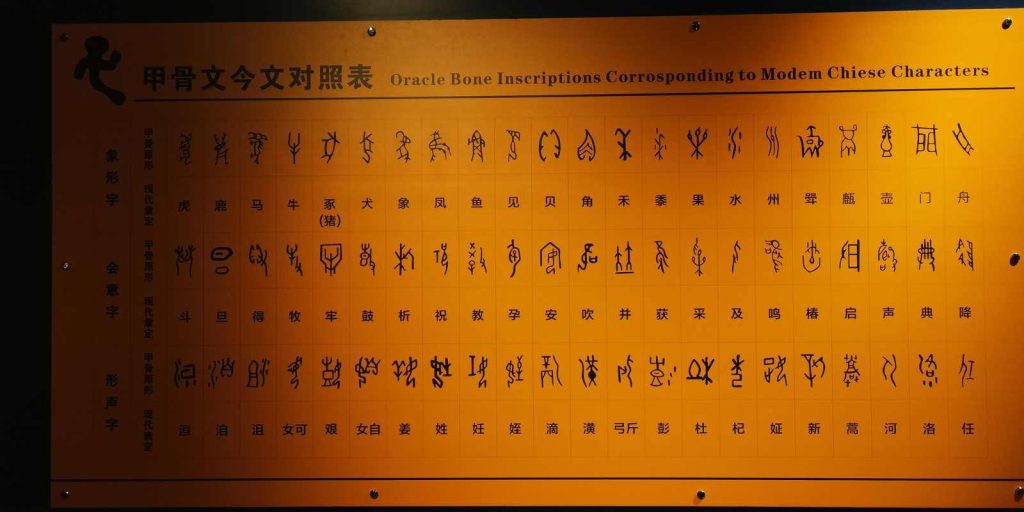 甲骨文今文对照表 Oracle Bone Inscriptions Corrosponding to Modem Chiese Characters
象形字
甲骨原形
现代隶定
虎 鹿 马 牛 豕(猪) 犬 象 凤 鱼 见 贝 角 禾 黍 果 水 州 斝 甗 壶 门 舟
会意字
甲骨原形
现代隶定
斗 旦 得 牧 牢 鼓 析 祝 教 孕 安 吹 并 获 采 及 鸣 椿 启 声 典 降
形声字
甲骨原形
现代隶定
洹 洎 沮 女可 艰 女自 姜 姓 妊 姪 滴 潢 弓斤 彭 杜 杞 姃 新 蒿 河 洛 任